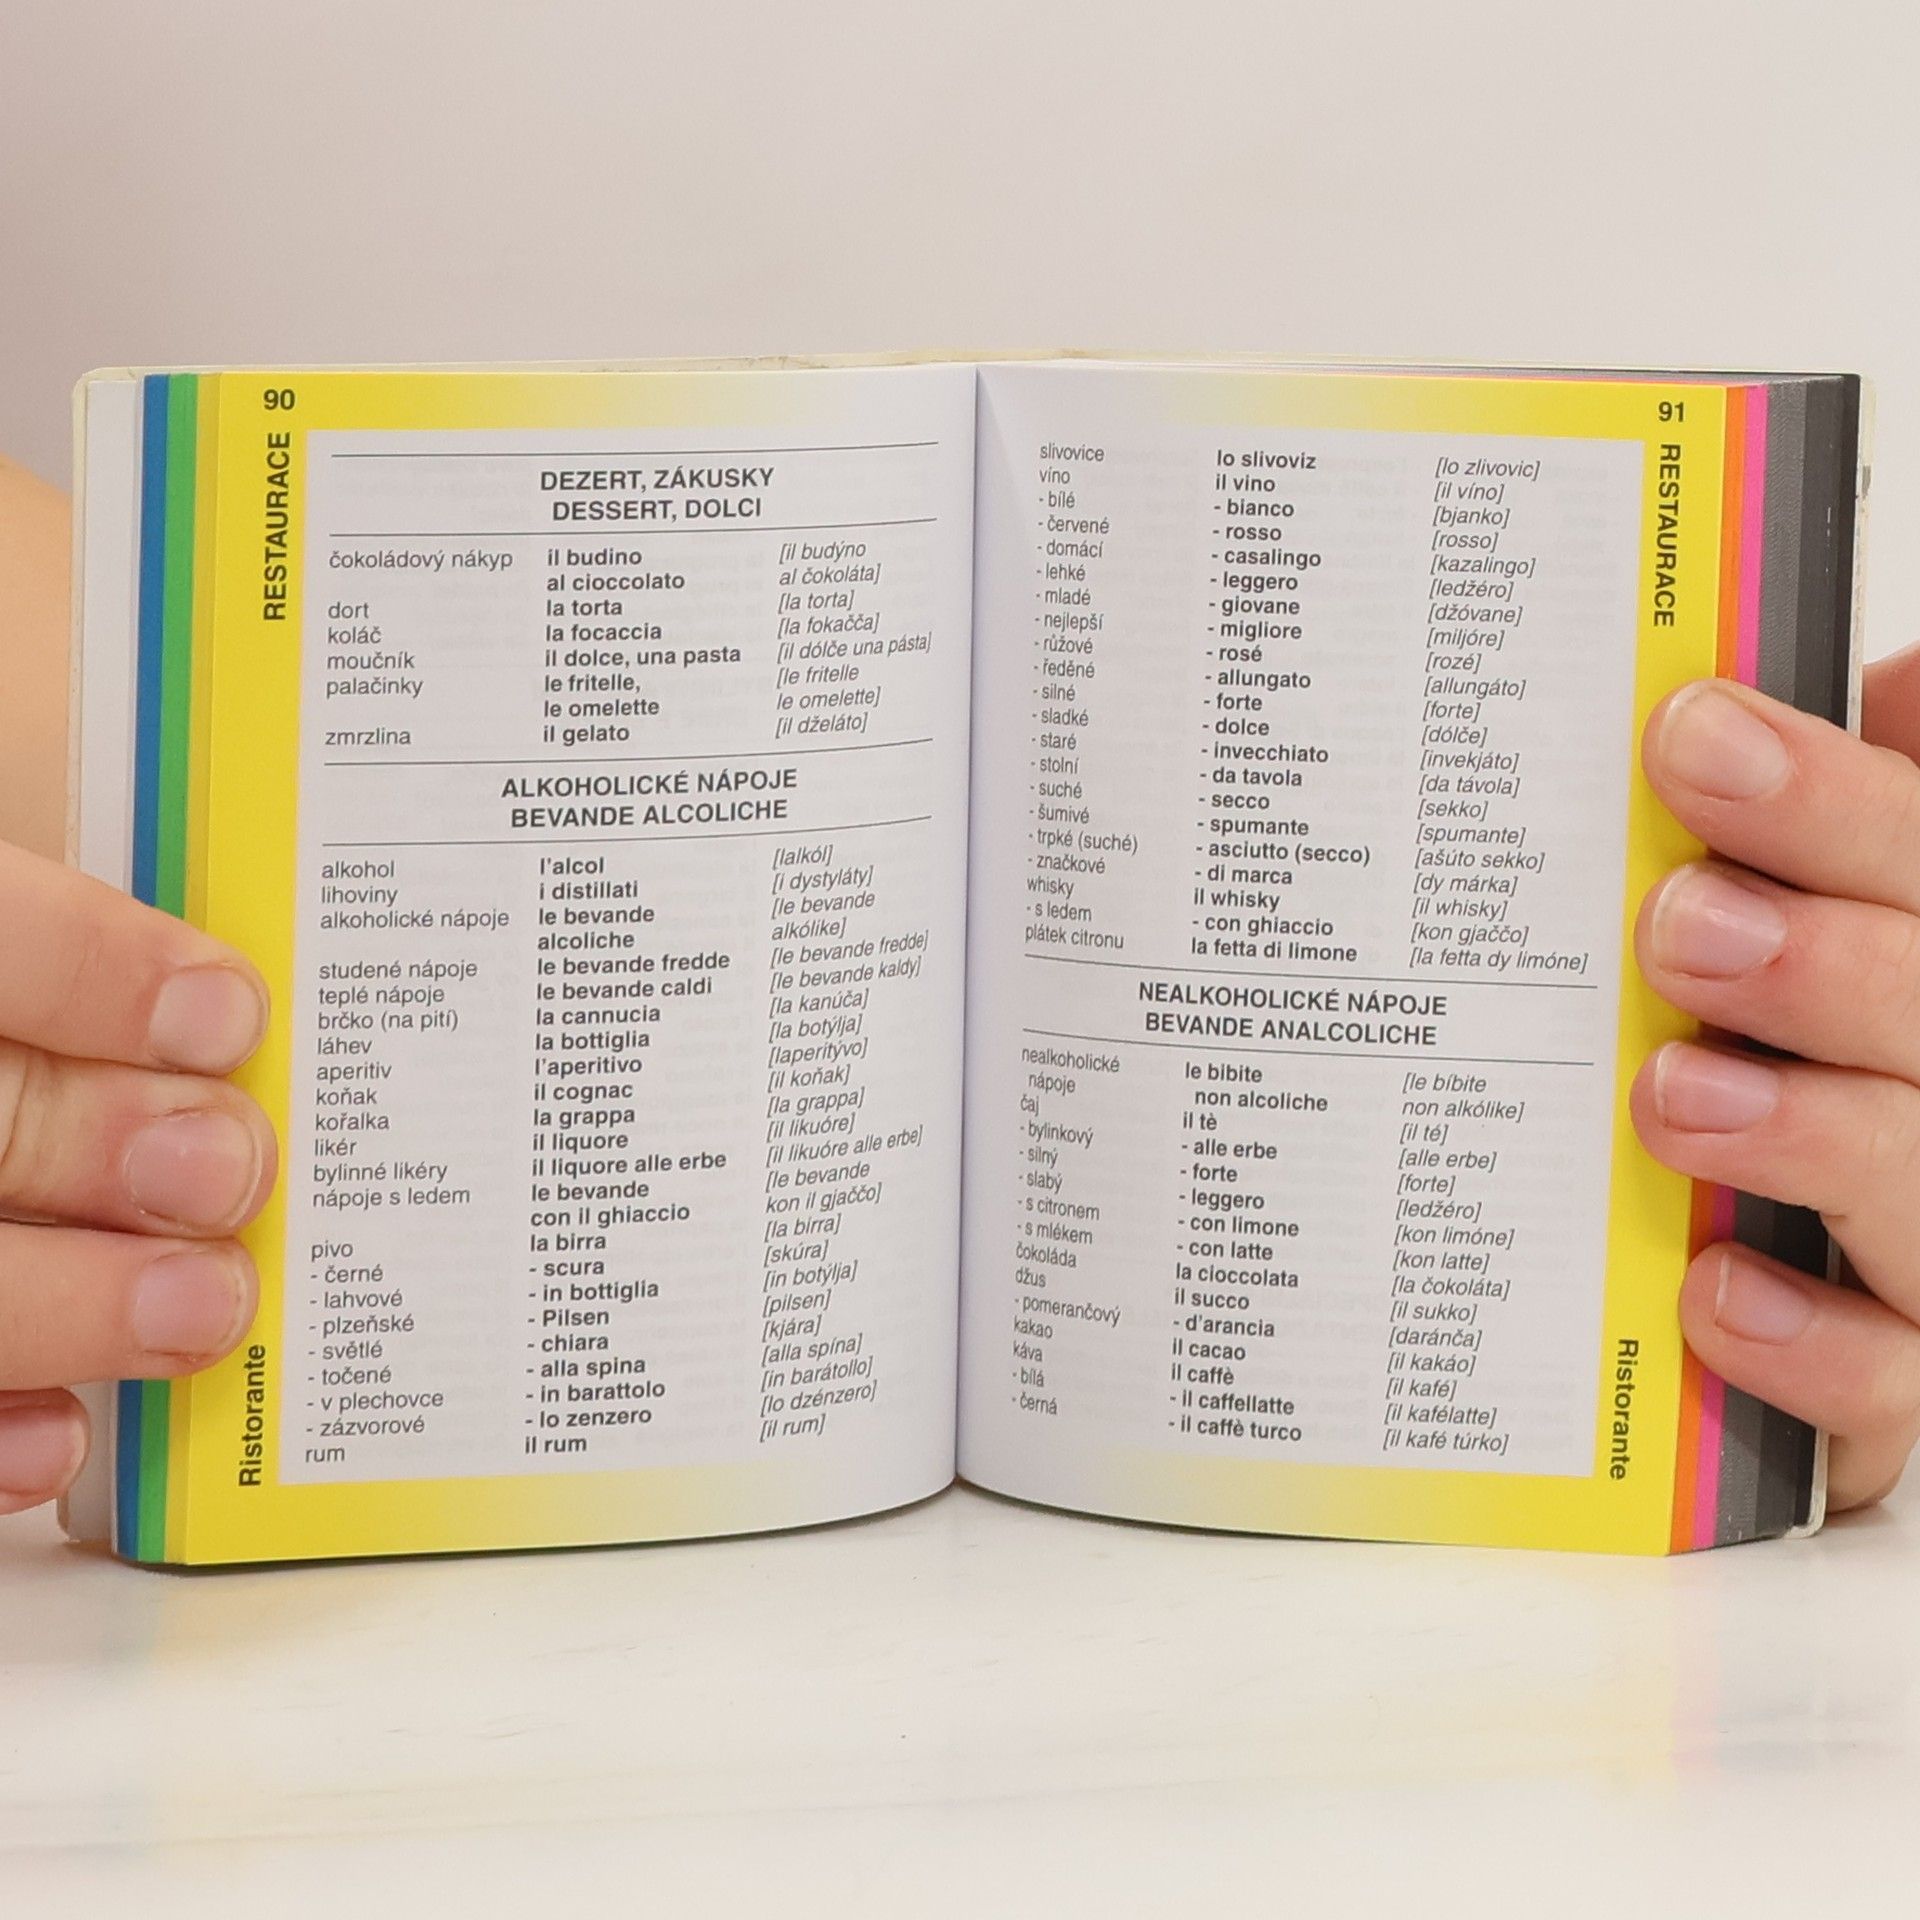 90
RESTAURACE
DEZERT, ZÁKUSKY
DESSERT, DOLCI
čokoládový nákyp il budino [il budýno
al cioccolato al čokoláta]
dort la torta [la torta]
koláč la focaccia [la fokačča]
moučník il dolce, una pasta [il dólče una pásta]
palačinky le fritelle, [le fritelle
le omelette le omelette]
zmrzlina il gelato [il dželáto]
ALKOHOLICKÉ NÁPOJE
BEVANDE ALCOLICHE
alkohol l'alcol [lalkól]
lihoviny i distillati [i dystyláty]
alkoholické nápoje le bevande [le bevande
alcoliche alkólike]
studené nápoje le bevande fredde [le bevande fredde]
teplé nápoje le bevande caldi [le bevande kaldy]
brčko (na pití) la cannucia [la kanúča]
láhev la bottiglia [la botýlja]
aperitiv l'aperitivo [laperitývo]
koňak il cognac [il koňak]
kořalka la grappa [la grappa]
likér il liquore [il likuóre]
bylinné likéry il liquore alle erbe [il likuóre alle erbe]
nápoje s ledem le bevande [le bevande
con il ghiaccio kon il gjaččo]
pivo la birra [la birra]
- černé - scura [skúra]
- lahvové - in bottiglia [in botýlja]
- plzeňské - Pilsen [pilsen]
- světlé - chiara [kjára]
- točené - alla spina [alla spína]
- v plechovce - in barattolo [in barátollo]
- zázvorové - lo zenzero [lo dzénzero]
rum il rum [il rum]
Ristorante
91
RESTAURACE
slivovice lo slivoviz [lo zlivovic]
víno il vino [il víno]
- bílé - bianco [bjanko]
- červené - rosso [rosso]
- domácí - casalingo [kazalingo]
- lehké - leggero [ledžéro]
- mladé - giovane [džóvane]
- nejlepší - migliore [miljóre]
- růžové - rosé [rozé]
- ředěné - allungato [allungáto]
- silné - forte [forte]
- sladké - dolce [dólče]
- staré - invecchiato [invekjáto]
- stolní - da tavola [da távola]
- suché - secco [sekko]
- šumivé - spumante [spumante]
- trpké (suché) - asciutto (secco) [ašúto sekko]
- značkové - di marca [dy márka]
whisky il whisky [il whisky]
- s ledem - con ghiaccio [kon gjaččo]
plátek citronu la fetta di limone [la fetta dy limóne]
NEALKOHOLICKÉ NÁPOJE
BEVANDE ANALCOLICHE
nealkoholické le bibite [le bíbite
nápoje non alcoliche non alkólike]
čaj il tè [il té]
- bylinkový - alle erbe [alle erbe]
- silný - forte [forte]
- slabý - leggero [ledžéro]
- s citronem - con limone [kon limóne]
- s mlékem - con latte [kon latte]
čokoláda la cioccolata [la čokoláta]
džus il succo [il sukko]
- pomerančový - d'arancia [daránča]
kakao il cacao [il kakáo]
káva il caffè [il kafé]
- bílá - il caffellatte [il kafélatte]
- černá - il caffè turco [il kafé túrko]
Ristorante